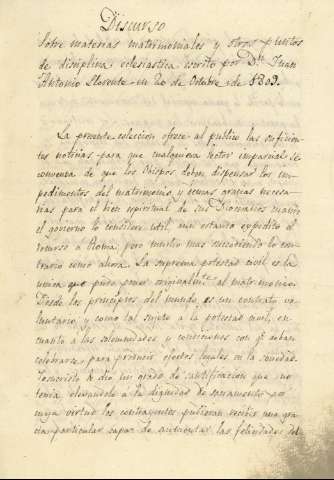 Discurso
Sobre materias matrimoniales y otros puntos
de disciplina eclesiastica escrito por Dn. Juan
Antonio Llorente en 20 de Octubre de 1809.
La presente coleccion ofrece al publico las suficien-
tes noticias para que cualquiera lector imparcial se
convenza de que los Obispos deben dispensar los im-
pedimentos del matrimonio y demas gracias necesa-
rias para el bien espiritual de sus Diocesanos cuando
el govierno lo considere util, aun estando expedito el
recurso a Roma pero mucho mas sucediendo lo con-
trario como ahora. La suprema potestad civil es la
unica que pudo poner originalmte. al matrimonio.
Desde los principios del mundo es un contrato vo-
luntario, y como tal sujeto a la potestad civil, en
cuanto a las solemnidades y condiciones con qe. deban
celebrarse para producir efectos legales en la sociedad.
Jesucristo le dio un grado de santificacion que no
tenia elevandole a la dignidad de sacramento por
cuya virtud los contrayentes pudieran recibir una gra-
cia particular capaz de aumentar las felicidades del